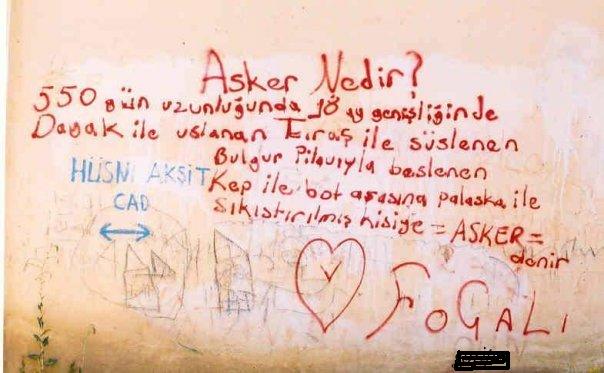 Asker Nedir?
550 gün uzunluğunda 18 ay genişliğinde
Dayak ile uslanan Tıraş ile süslenen
Bulgur Pilavıyla beslenen
Kep ile bot arasına palaska ile
Sıkıstırılmış kisiye = ASKER =
denir
HÜSNÜ AKŞİT
CAD
FOGALI